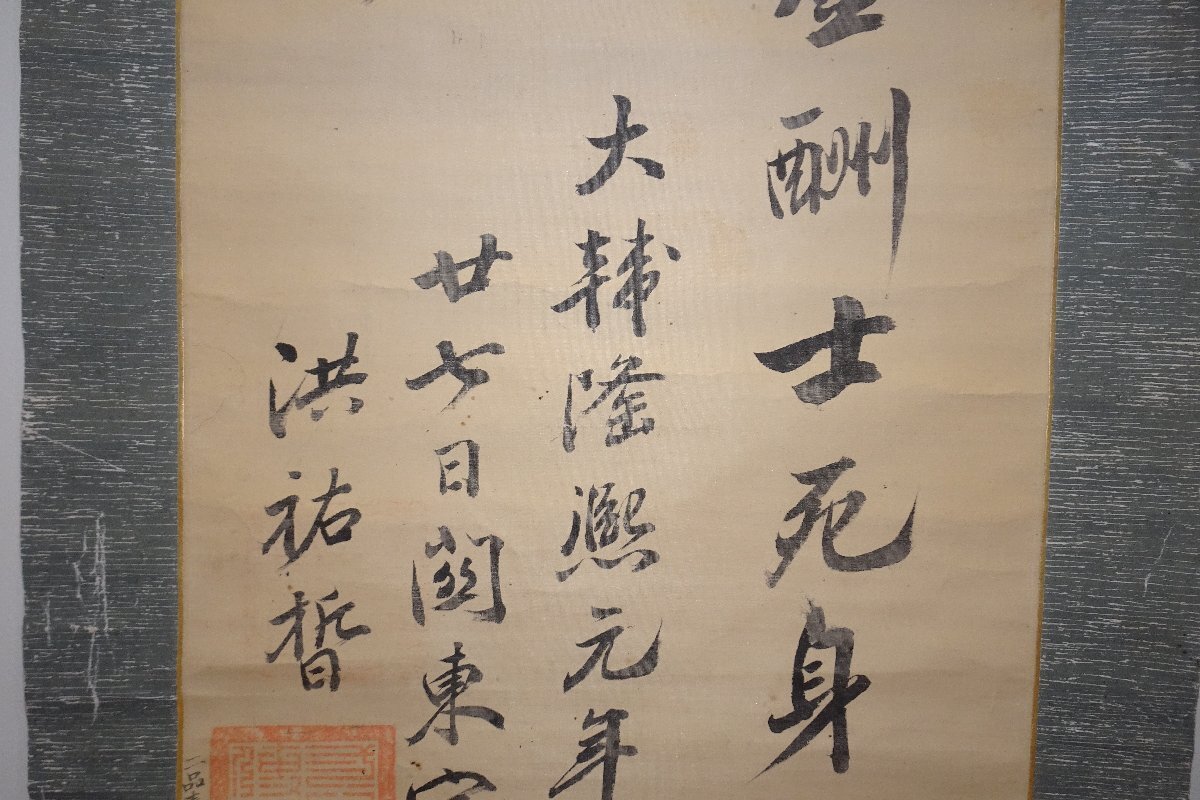 酬士死身
大韓隆熙元年
廿七日關東
洪祐晳